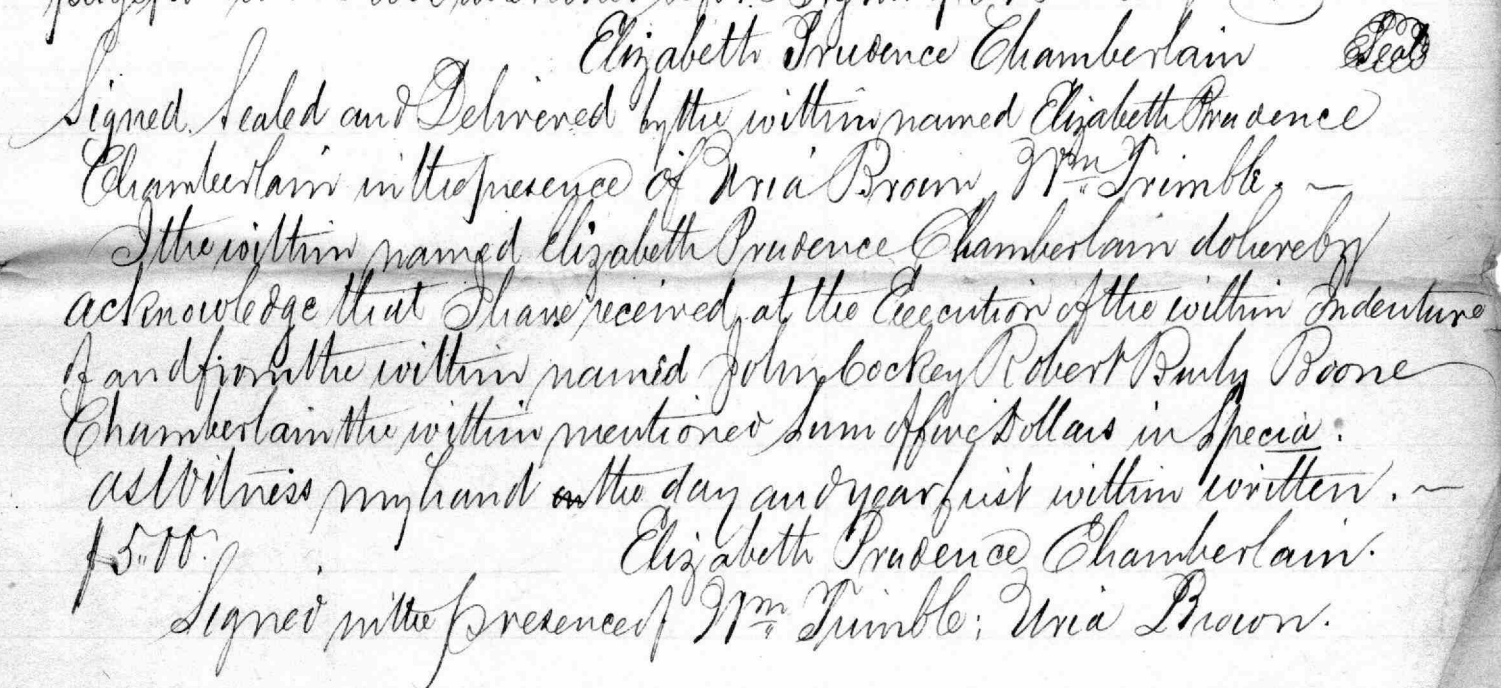 Elizabeth Prudence Chamberlain Seal
Signed. Sealed and Delivered by the within named Elizabeth Prudence
Chamberlain in the presence of Uria Brown, Wm Trimble. ~
I the within named Elizabeth Prudence Chamberlain do hereby
acknowledge that I have received, at the Execution of the within Indenture
of and from the within named John Cockey Robert Burly Boone
Chamberlain the within mentioned Sum of five Dollars in Specia.
as Witness my hand on the day and year first within written. ~
$5.00.
Elizabeth Prudence Chamberlain.
Signed in the presence of Wm Trimble; Uria Brown.